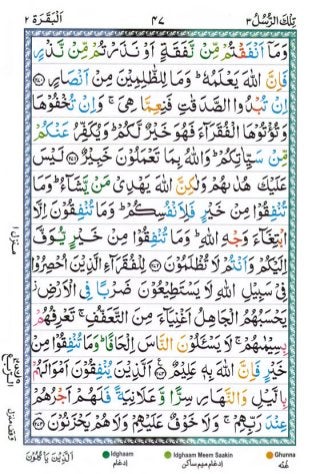 تِلْكَ الرُّسُلُ ٣
٤٧
اَلْبَقَرَة ٢
وَمَآ اَنْفَقْتُمْ مِّنْ نَّفَقَةٍ اَوْ نَذَرْتُمْ مِّنْ نَّذْرٍ
فَاِنَّ اللّٰهَ يَعْلَمُهٗ ؕ وَمَا لِلظّٰلِمِيْنَ مِنْ اَنْصَارٍ ﴿۲۷۰﴾
اِنْ تُبْدُوا الصَّدَقٰتِ فَنِعِمَّا هِىَ ۚ وَاِنْ تُخْفُوْهَا
وَتُؤْتُوْهَا الْفُقَرَآءَ فَهُوَ خَيْرٌ لَّكُمْ ؕ وَيُكَفِّرُ عَنْكُمْ
مِّنْ سَيِّاٰتِكُمْ ؕ وَاللّٰهُ بِمَا تَعْمَلُوْنَ خَبِيْرٌ ﴿۲۷۱﴾ لَيْسَ
عَلَيْكَ هُدٰىهُمْ وَلٰكِنَّ اللّٰهَ يَهْدِىْ مَنْ يَّشَآءُ ؕ وَمَا
تُنْفِقُوْا مِنْ خَيْرٍ فَلِاَنْفُسِكُمْ ؕ وَمَا تُنْفِقُوْنَ اِلَّا
ابْتِغَآءَ وَجْهِ اللّٰهِ ؕ وَمَا تُنْفِقُوْا مِنْ خَيْرٍ يُّوَفَّ
اِلَيْكُمْ وَاَنْتُمْ لَا تُظْلَمُوْنَ ﴿۲۷۲﴾ لِلْفُقَرَآءِ الَّذِيْنَ اُحْصِرُوْا
فِىْ سَبِيْلِ اللّٰهِ لَا يَسْتَطِيْعُوْنَ ضَرْبًا فِى الْاَرْضِ ؗ
يَحْسَبُهُمُ الْجَاهِلُ اَغْنِيَآءَ مِنَ التَّعَفُّفِ ۚ تَعْرِفُهُمْ
بِسِيْمٰهُمْ ۚ لَا يَسْـَٔلُوْنَ النَّاسَ اِلْحَافًا ؕ وَمَا تُنْفِقُوْا مِنْ
خَيْرٍ فَاِنَّ اللّٰهَ بِهٖ عَلِيْمٌ ﴿۲۷۳﴾ اَلَّذِيْنَ يُنْفِقُوْنَ اَمْوَالَهُمْ
بِالَّيْلِ وَالنَّهَارِ سِرًّا وَّعَلَانِيَةً فَلَهُمْ اَجْرُهُمْ
عِنْدَ رَبِّهِمْ ۚ وَلَا خَوْفٌ عَلَيْهِمْ وَلَا هُمْ يَحْزَنُوْنَ ﴿۲۷۴﴾
منزل ١
اَلَّذِيْنَ يَاْكُلُوْنَ
Idghaam
ادغام
Idghaam Meem Saakin
ادغام میم ساکن
Ghunna
غنّه